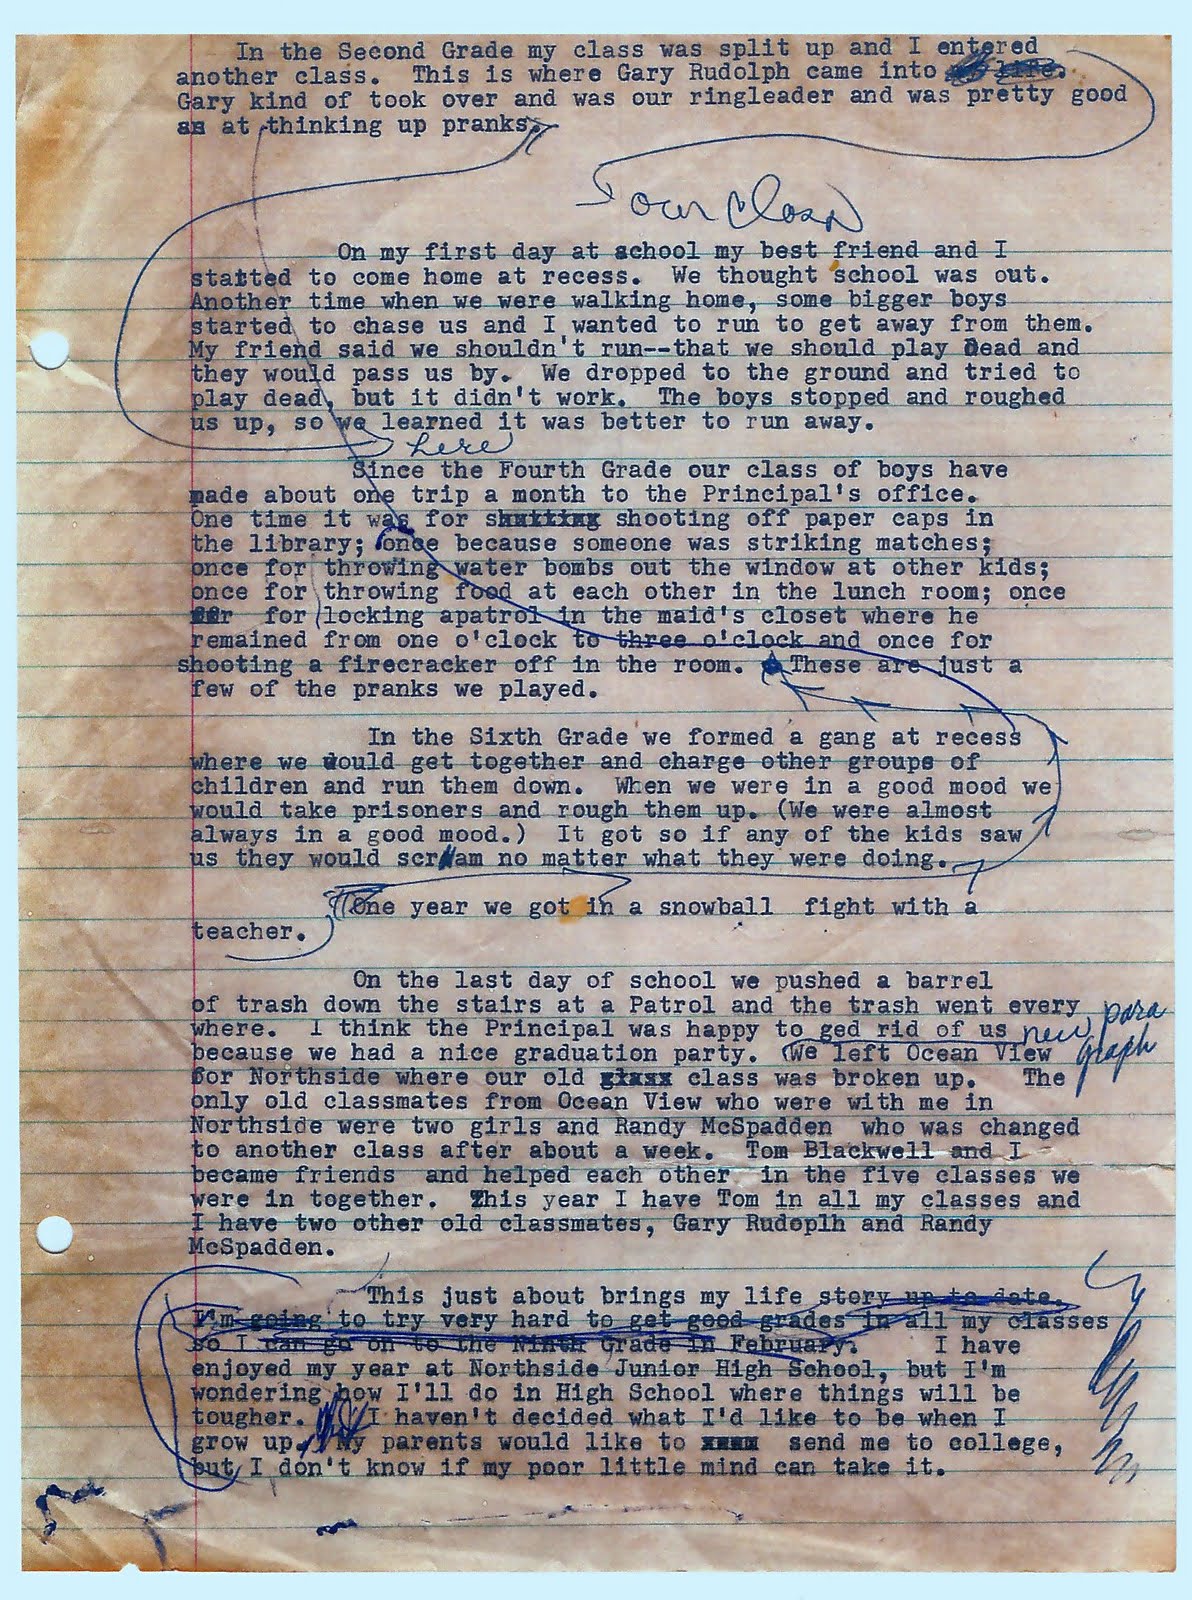 In the Second Grade my class was split up and I entered
another class.  This is where Gary Rudolph came into life.
Gary kind of took over and was our ringleader and was pretty good
as at thinking up pranks.
our class
On my first day at school my best friend and I
statted to come home at recess.  We thought school was out.
Another time when we were walking home, some bigger boys
started to chase us and I wanted to run to get away from them.
My friend said we shouldn't run--that we should play Dead and
they would pass us by.  We dropped to the ground and tried to
play dead, but it didn't work.  The boys stopped and roughed
us up, so we learned it was better to run away.
here
Since the Fourth Grade our class of boys have
made about one trip a month to the Principal's office.
One time it was for shooting off paper caps in
the library; once because someone was striking matches;
once for throwing water bombs out the window at other kids;
once for throwing food at each other in the lunch room; once
for locking apatrol in the maid's closet where he
remained from one o'clock to three o'clock and once for
shooting a firecracker off in the room.  These are just a
few of the pranks we played.
In the Sixth Grade we formed a gang at recess
where we would get together and charge other groups of
children and run them down.  When we were in a good mood we
would take prisoners and rough them up. (We were almost
always in a good mood.)  It got so if any of the kids saw
us they would scram no matter what they were doing.
One year we got in a snowball  fight with a
teacher.
On the last day of school we pushed a barrel
of trash down the stairs at a Patrol and the trash went every
where.  I think the Principal was happy to ged rid of us
new para
graph
because we had a nice graduation party. (We left Ocean View
for Northside where our old class was broken up.   The
only old classmates from Ocean View who were with me in
Northside were two girls and Randy McSpadden  who was changed
to another class after about a week.  Tom Blackwell and I
became friends  and helped each other  in the five classes we
were in together.  This year I have Tom in all my classes and
I have two other old classmates, Gary Rudoplh and Randy
McSpadden.
This just about brings my life story up to date.
I'm going to try very hard to get good grades in all my classes
so I can go on to the Ninth Grade in February.    I have
enjoyed my year at Northside Junior High School, but I'm
wondering how I'll do in High School where things will be
tougher.  I haven't decided what I'd like to be when I
grow up.  My parents would like to send me to college,
but I don't know if my poor little mind can take it.